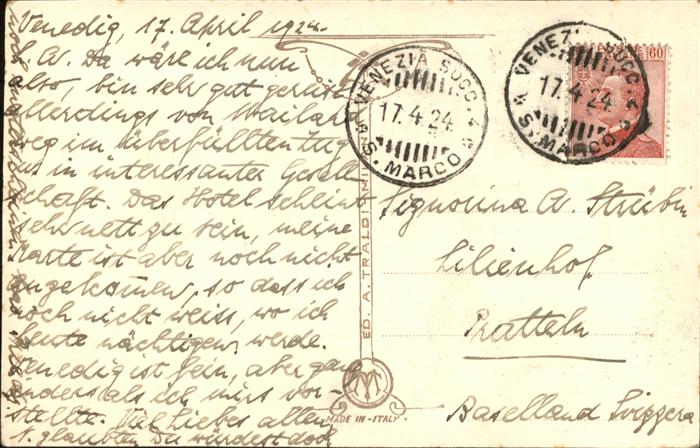 Venedig, 17. April 1924.
L. A. Da wäre ich nun
also, bin sehr gut gereist
allerdings von Mailand
weg im überfüllten Zug
u. in interessanter Gesell
schaft. Das Hotel scheint
sehr nett zu sein, meine
Karte ist aber noch nicht
angekommen, so dass ich
noch nicht weiss, wo ich
heute nächtigen werde.
Venedig ist fein, aber ganz
anders als ich mirs vor
stellte. Viel Liebes allen
glaubten Du würdest doch
VENEZIA SUCC. 4
17.4.24
S. MARCO
VENEZIA SUCC. 4
17.4.24
S. MARCO
60
Signorina A. Strübin
Lilienhof
Pratteln
Baselland Svizzera
ED. A. TRALDI MI
MADE IN ITALY